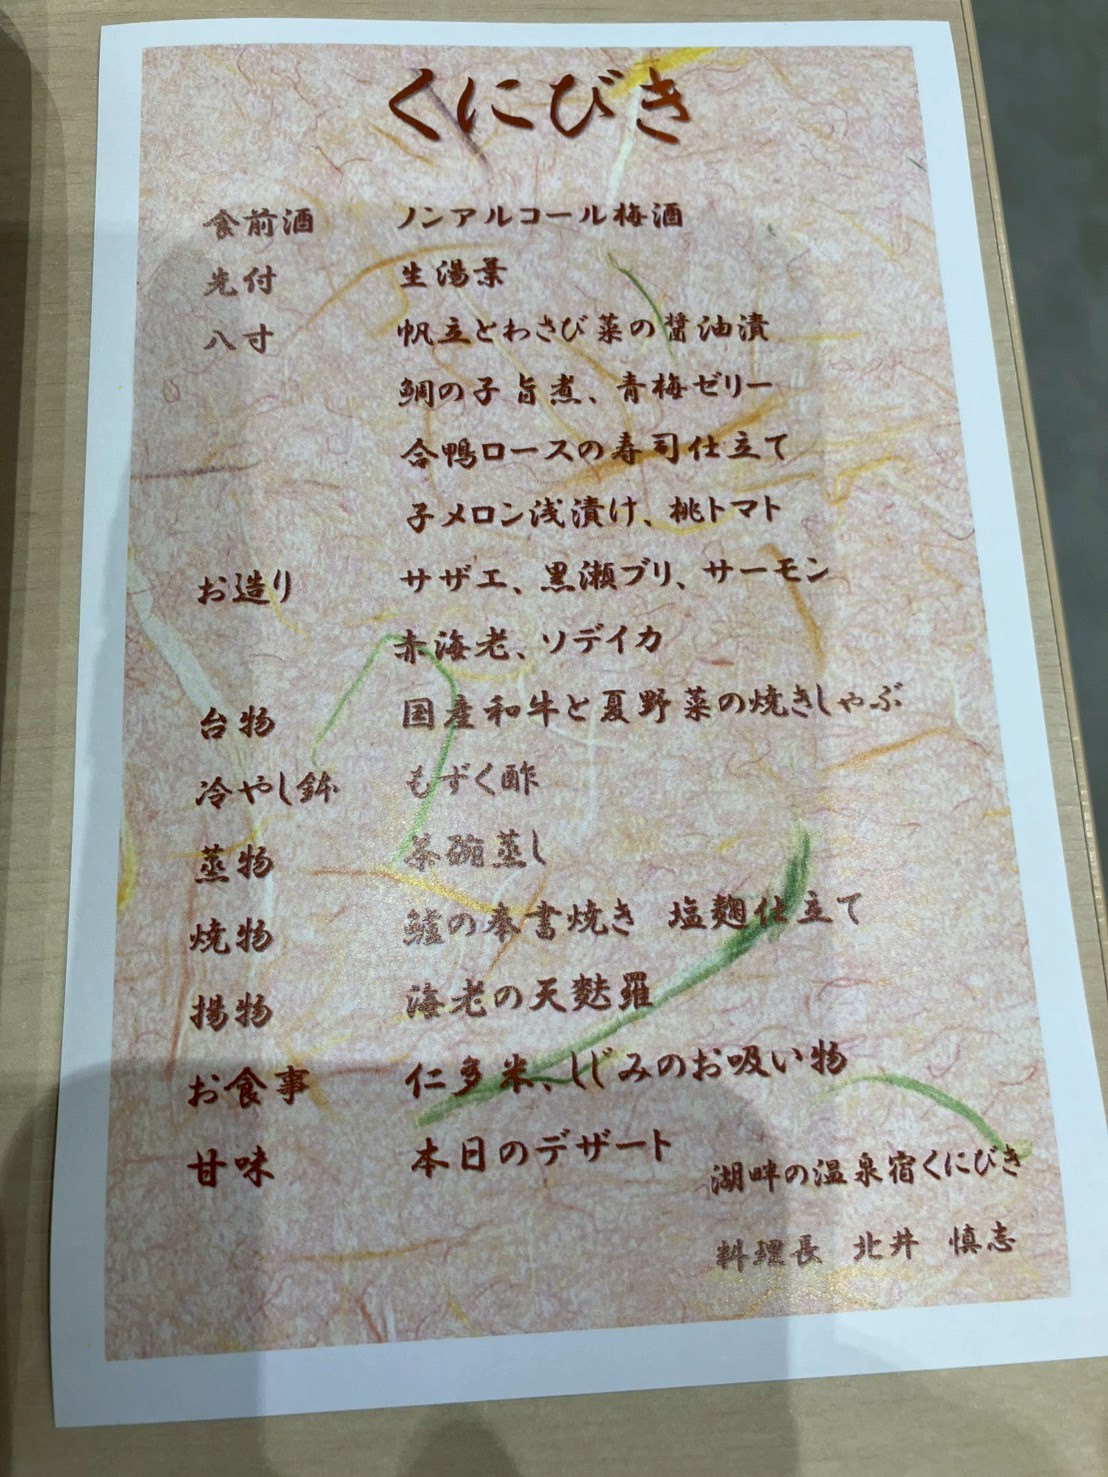 くにびき
食前酒 ノンアルコール梅酒
先付 生湯葉
八寸 帆立とわさび菜の醤油漬
鯛の子旨煮、青梅ゼリー
合鴨ロースの寿司仕立て
子メロン浅漬け、桃トマト
お造り サザエ、黒瀬ブリ、サーモン
赤海老、ソデイカ
台物 国産和牛と夏野菜の焼きしゃぶ
冷やし鉢 もずく酢
蒸物 茶碗蒸し
焼物 鱸の奉書焼き 塩麹仕立て
揚物 海老の天麩羅
お食事 仁多米、しじみのお吸い物
甘味 本日のデザート
湖畔の温泉宿くにびき
料理長 北井 慎志